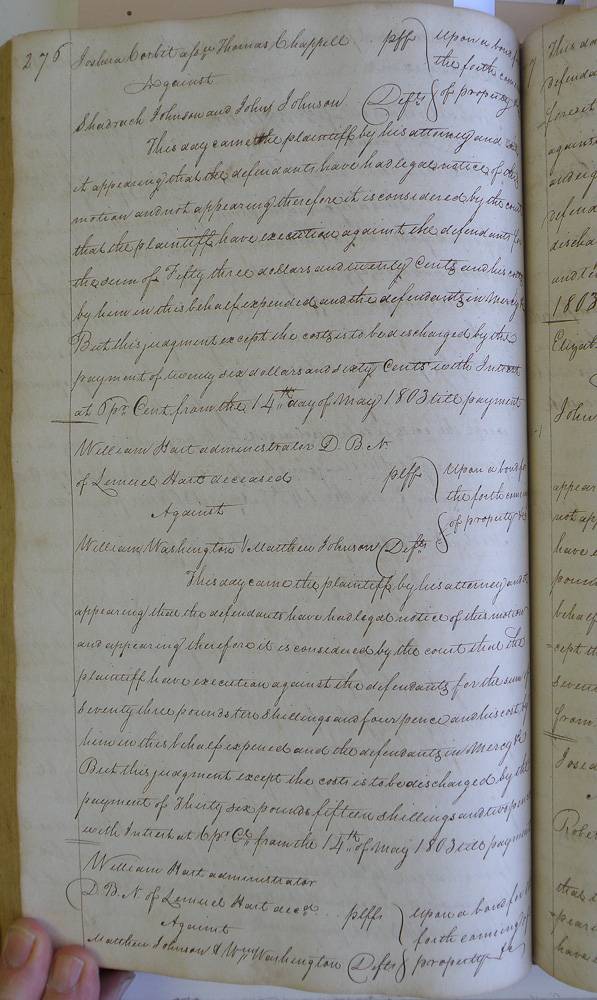 276 Joshua Corbit assee Thomas Chappell plff Upon a bond for
Against the forth coming
Shadrach Johnson and John Johnson Defts of property
This day came the plaintiff by his attorney and
it appearing that the defendants have had legal notice of this
motion and not appearing therefore it is considered by the court
that the plaintiff have execution against the defendants for
the sum of Fifty three dollars and twenty Cents and his costs
by him in this behalf expended and the defendants in Mercy &c
But this judgment except the costs is to be discharged by the
payment of twenty six dollars and sixty Cents with Interest
at 6 pr Cent from the 14th day of May 1803 till payment
William Hart administrator D. B. N.
of Lemuel Hart deceased plff Upon a bond for
Against the forth coming
of property &c
William Washington & Matthew Johnson Defts
This day came the plaintiff by his attorney and it
appearing that the defendants have had legal notice of this motion
and appearing therefore it is considered by the court that the
plaintiff have execution against the defendants for the sum of
Seventy three pounds ten Shillings and four pence and his cost by
him in this behalf expened and the defendants in Mercy &c
But this judgment except the costs is to be discharged by the
payment of Thirty six pounds fifteen shillings and two pence
with Interest at 6 pr Ct from the 14th of May 1803 till payment
William Hart administrator
D. B. N of Lemuel Hart decd plffs upon a bond for the
Against forth coming of
Matthew Johnson & Wm Washington Defts property &c
This da
defenda
against
refend
discha
1803
Elizab
John
appear
not app
have e
poun
behalf
cept th
seven
from
Robe
that
have